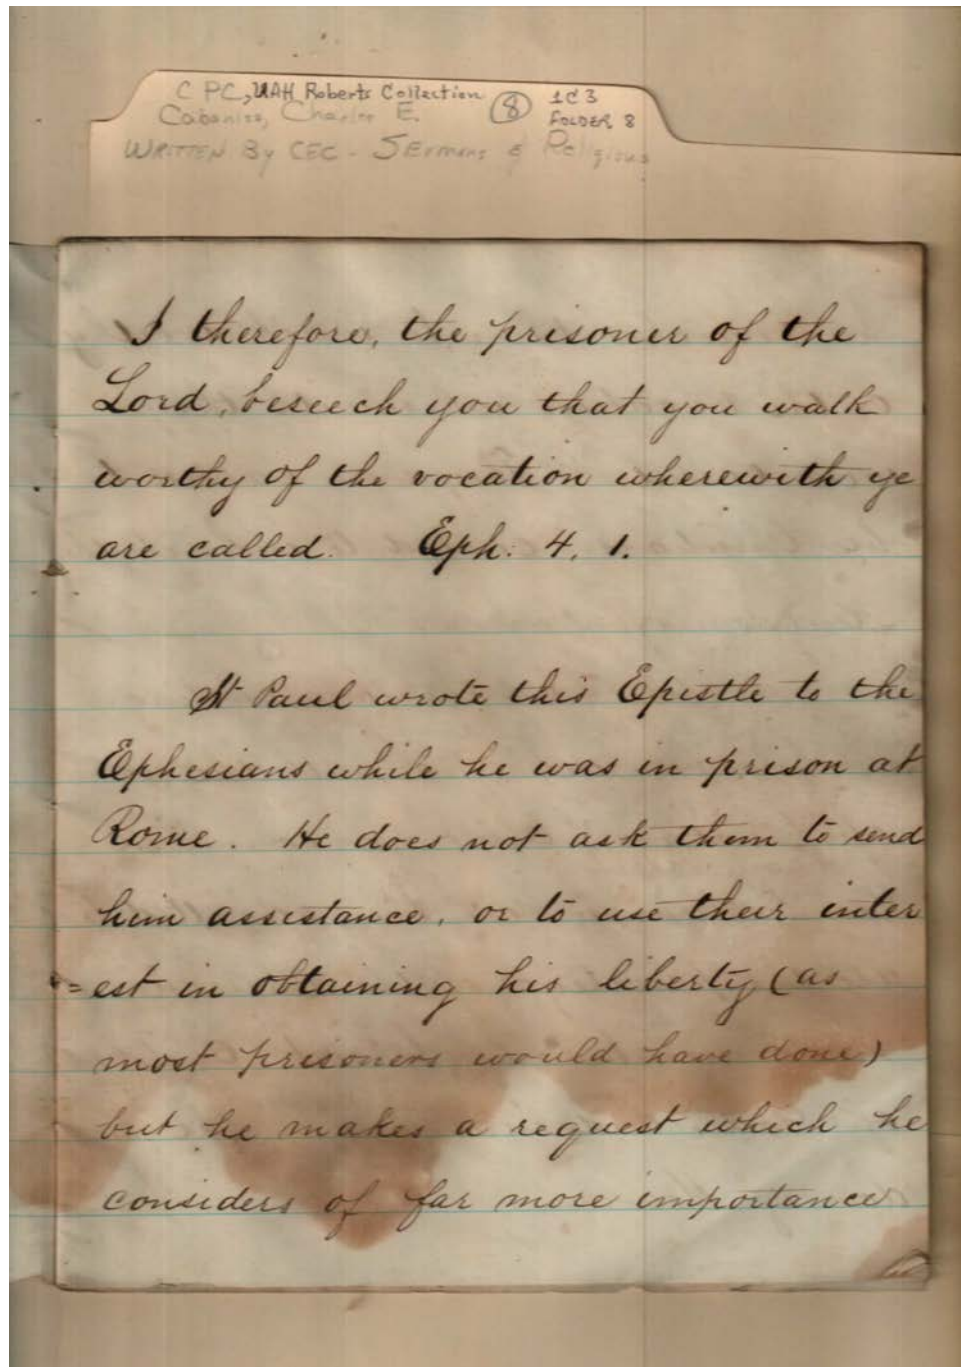 C PC, UAH Roberts Collection 8 1C3
Cabaniss, Charles E. FOLDER 8
WRITTEN By CEC - SErmons & Religious
I therefore, the prisoner of the
Lord, beseech you that you walk
worthy of the vocation wherewith ye
are called. Eph. 4. 1.
St Paul wrote this Epistle to the
Ephesians while he was in prison at
Rome. He does not ask them to send
him assistance, or to use their inter
=est in obtaining his liberty (as
most prisoners would have done)
but he makes a request which he
considers of far more importance